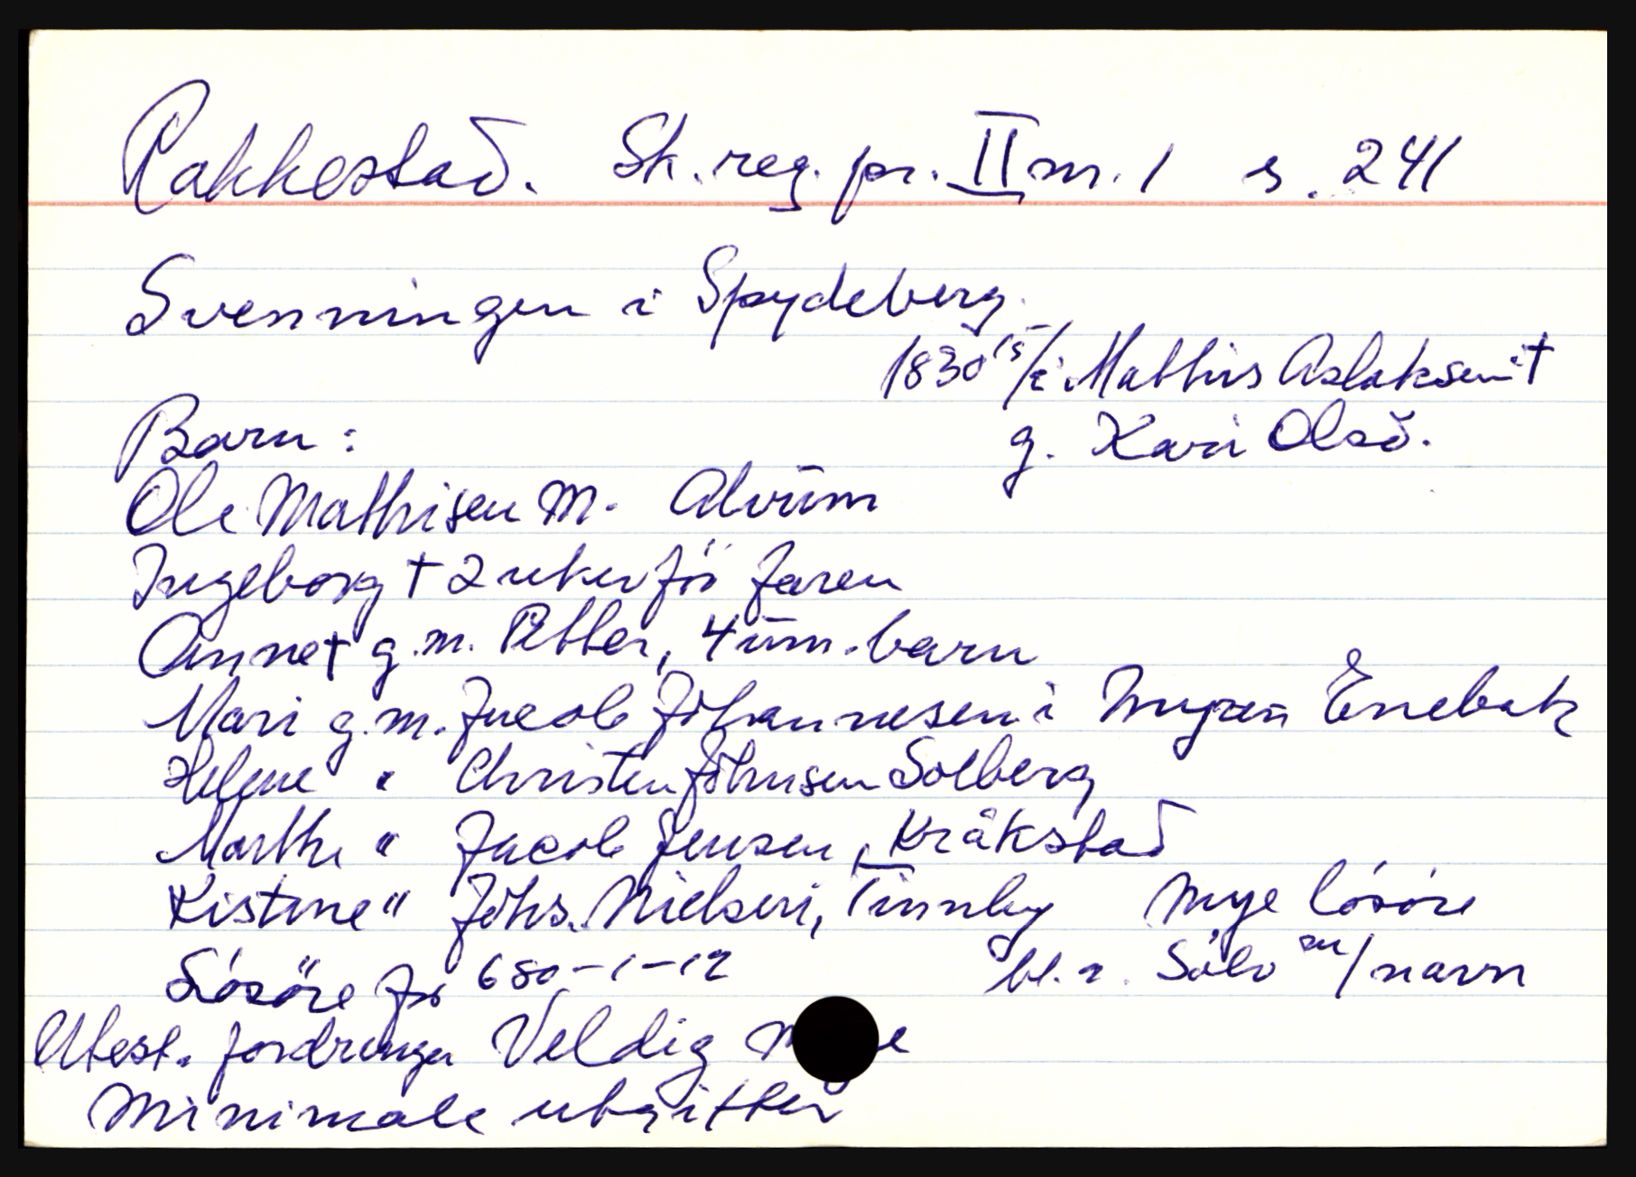 Rakkestad. Sk. reg. pr. II nr. 1 s. 241
Svenningen i Spydeberg.
1830 15/2 Mathis Aslaksen †
g. Kari Olsd.
Barn:
Ole Mathisen M. Alvim
Ingeborg † 2 uker før faren
Anne † g.m. Petter, 4 um. barn
Mari g.m. Jacob Johannesen i Enebak
Helene " Christen Johnsen Solberg
Marthe " Jacob Jensen, Kråkstad
Kistine " Johs. Nielsen, Finnby Mye løsøre
Løsøre for 680-1-12 bl.a. Sølv m/navn
Utest. fordringer Veldig mye
Minimale utgifter